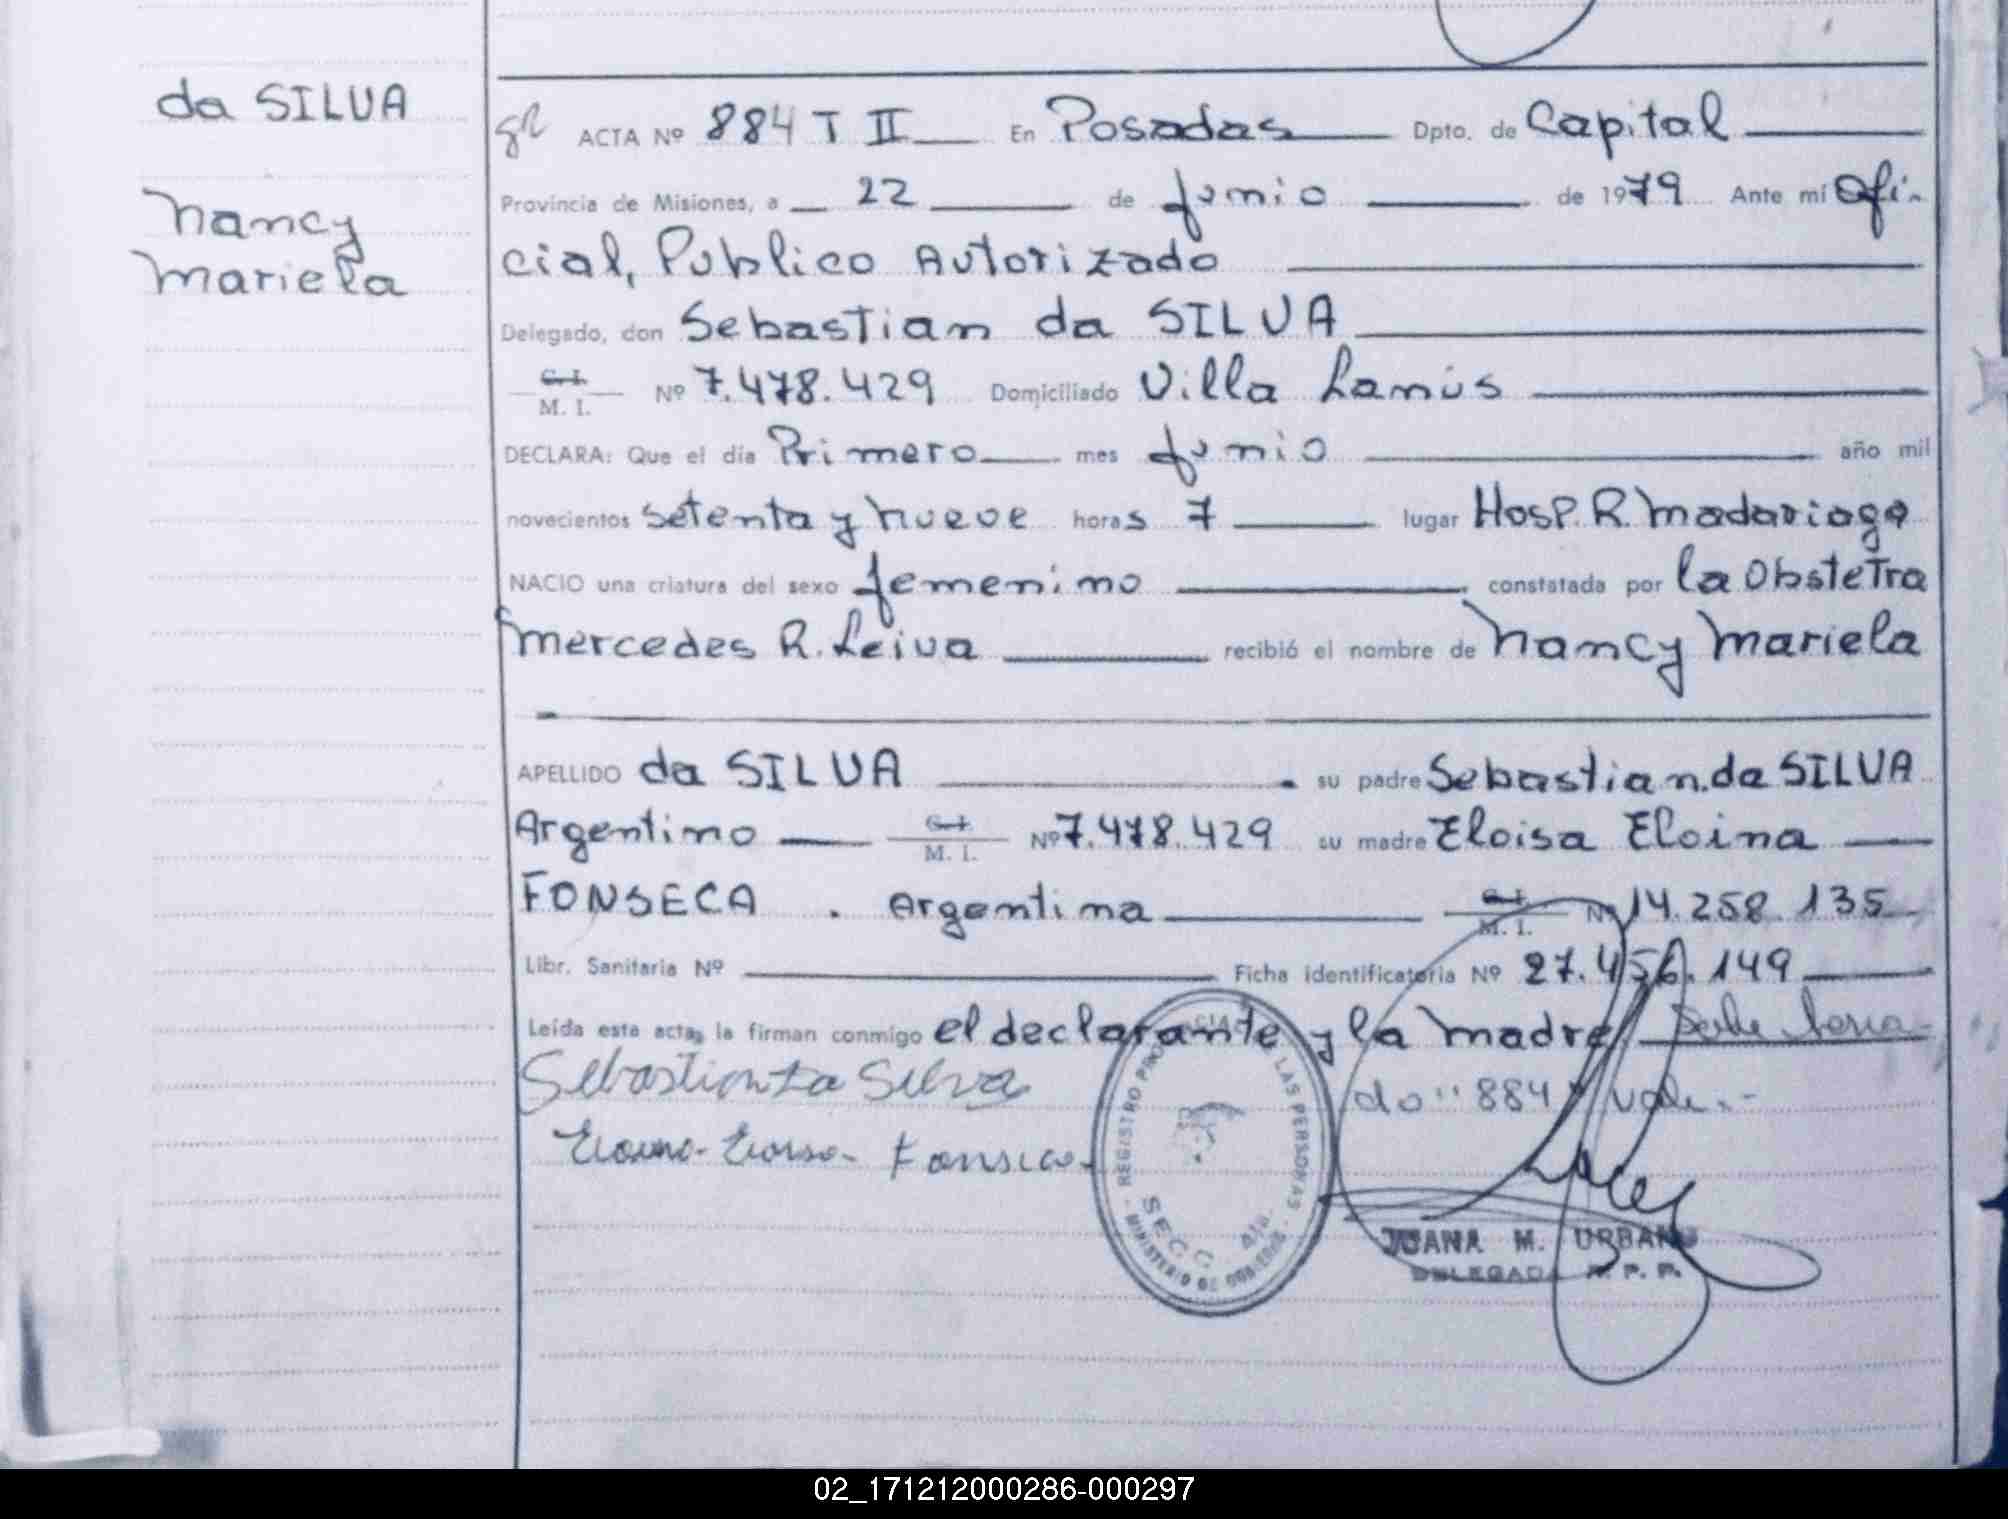 da SILVA
Nancy
Mariela
ACTA Nº 884 T II En Posadas Dpto. de Capital
Provincia de Misiones, a 22 de junio de 1979 Ante mí Ofi-
cial, Publico Autorizado
Delegado, don Sebastian da SILVA
C.I. M. I. Nº 7.478.429 Domiciliado Villa Lanús
DECLARA: Que el día Primero mes junio año mil
novecientos setenta y nueve horas 7 lugar Hosp. R. Madariaga
NACIO una criatura del sexo femenino constatada por la Obstetra
Mercedes R. Leiva recibió el nombre de Nancy Mariela
APELLIDO da SILVA su padre Sebastian da SILVA
Argentino C.I. M. I. Nº 7.478.429 su madre Eloisa Eloina
FONSECA . Argentina C.I. M. I. Nº 14.258.135
Libr. Sanitaria Nº Ficha identificatoria Nº 27.456.149
Leída esta acta, la firman conmigo el declarante y la madre
Sebastian Da Silva
do "884" vale.-
Fonseca
REGISTRO PROVINCIAL DE LAS PERSONAS
MINISTERIO DE GOBIERNO
SECC. 4ta.
JUANA M. URBANO
DELEGADA R. P. P.
02_171212000286-000297